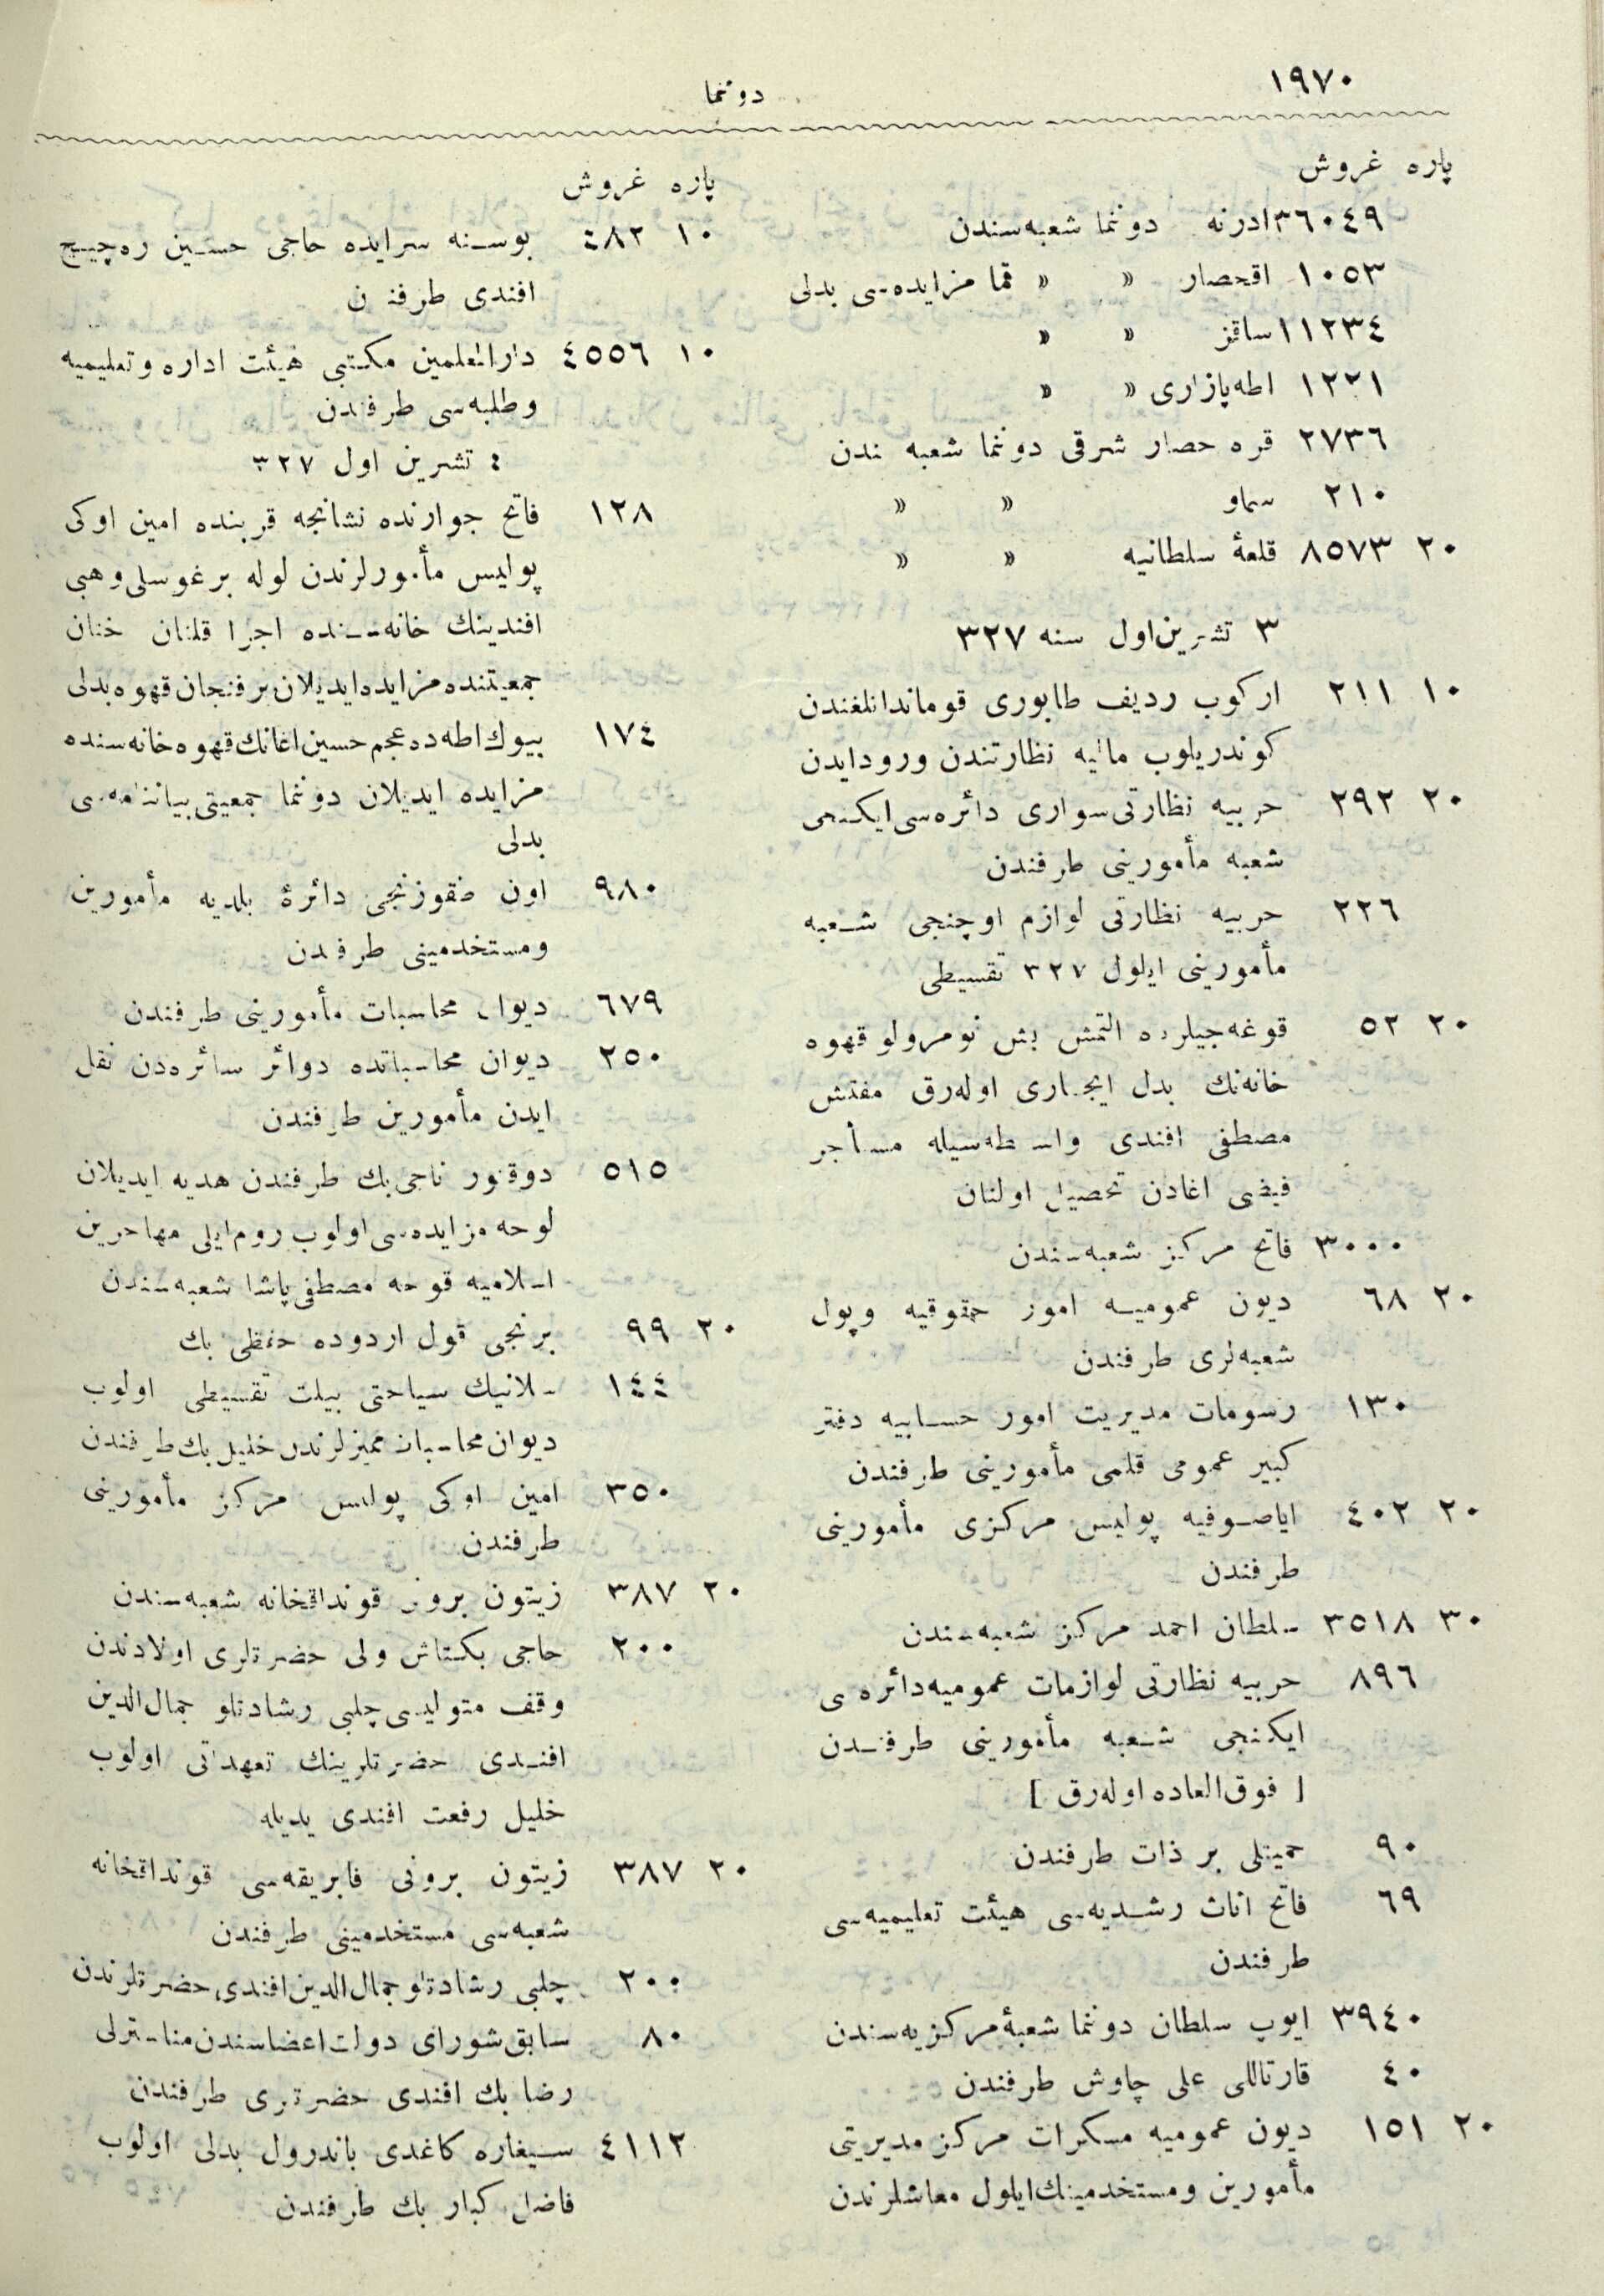 ١٩٧٠
دوننما
پاره غروش
٣٦٠٤٩ ادرنه دوننما شعبه‌سندن
١٠٥٣ اقحصار » » قما مزایده‌سی بدلی
١١٢٣٤ ساقز » »
١٢٢١ اطه‌پازاری » »
٢٧٣٦ قره حصار شرقی دوننما شعبه‌ ندن
٢١٠ سماو » »
٢٠ ٨٥٧٣ قلعهٔ سلطانیه » »
٣ تشرین‌اول سنه ٣٢٧
١٠ ٢١١ ارکوب ردیف طابوری قوماندانلغندن
کوندریلوب مالیه نظارتندن ورودایدن
٢٠ ٢٩٢ حربیه نظارتی سواری دائره‌سی ایکنجی
شعبه مأمورینی طرفندن
٢٢٦ حربیه نظارتی لوازم اوچنجی شعبه
مأمورینی ایلول ٣٢٧ تقسیطی
٢٠ ٥٢ قوغه‌جیلرده التمش بش نومرولو قهوه
خانه‌نك بدل ایجاری اوله‌رق مفتش
مصطفی افندی واسطه‌سیله مستأجر
فیضی اغادن تحصیل اولنان
٣٠٠٠ فاتح مرکز شعبه‌سندن
٢٠ ٦٨ دیون عمومیه امور حقوقیه وپول
شعبه‌لری طرفندن
١٣٠ رسومات مدیریت امور حسابیه دفتر
کبیر عمومی قلمی مأمورینی طرفندن
٢٠ ٤٠٢ ایاصوفیه پولیس مرکزی مأمورینی
طرفندن
٣٠ ٣٥١٨ سلطان احمد مرکز شعبه‌سندن
٨٩٦ حربیه نظارتی لوازمات عمومیه‌دائره‌ سی
ایکنجی شعبه مأمورینی طرفندن
[ فوق‌العاده اوله‌رق ]
٩٠ حمیتلی بر ذات طرفندن
٦٩ فاتح اناث رشدیه‌سی هیئت تعلیمیه‌سی
طرفندن
٣٩٤٠ ایوب سلطان دوننما شعبهٔ مرکزیه‌سندن
٤٠ قارتاللی علی چاوش طرفندن
٢٠ ١٥١ دیون عمومیه مسکرات مرکز مدیریتی
مأمورین ومستخدمینك ایلول معاشلرندن
پاره غروش
١٠ ٤٨٢ بوسنه سرایده حاجی حسین ره‌چیچ
افندی طرفندن
١٠ ٤٥٥٦ دارالمعلمین مکتبی هیئت اداره وتعلیمیه
وطلبه‌سی طرفندن
٤ تشرین اول ٣٢٧
١٢٨ فاتح جوارنده نشانجه قربنده امین اوکی
پولیس مأمورلرندن لوله برغوسلی وهبی
افندینك خانه‌سنده اجرا قلنان ختان
جمعیتنده مزایده‌ایدیلان برفنجان قهوه بدلی
١٧٤ بیوك اطه‌ده عجم حسین اغانك قهوه خانه‌سنده
مزایده ایدیلان دوننما جمعیتی بیاننامه‌سی
بدلی
٩٨٠ اون طقوزنجی دائرهٔ بلدیه مأمورین
ومستخدمینی طرفندن
٦٧٩ دیوان محاسبات مأمورینی طرفندن
٢٥٠ دیوان محاسباتده دوائر سائره‌دن نقل
ایدن مأمورین طرفندن
٥١٥ دوقتور ناجی بك طرفندن هدیه ایدیلان
لوحه مزایده‌سی اولوب روم‌ایلی مهاجرین
اسلامیه قوجه مصطفی پاشا شعبه‌سندن
٢٠ ٩٩ برنجی قول اردوده حفظی بك
١٤٤ سلانیك سیاحتی بیلت تقسیطی اولوب
دیوان محاسبات ممیزلرندن خلیل بك طرفندن
٣٥٠ امین اوکی پولیس مرکز مأمورینی
طرفندن
٢٠ ٣٨٧ زیتون برونی قونداقخانه شعبه‌سندن
٢٠٠ حاجی بکتاش ولی حضرتلری اولادندن
وقف متولیسی چلبی رشادتلو جمال‌الدین
افندی حضرتلرینك تعهداتی اولوب
خلیل رفعت افندی یدیله
٢٠ ٣٨٧ زیتون برونی فابریقه‌سی قونداقخانه
شعبه‌سی مستخدمینی طرفندن
٢٠٠ چلبی رشادتلو جمال‌الدین افندی حضرتلرندن
٨٠ سابق شورای دولت اعضاسندن مناسترلی
رضا بك افندی حضرتلری طرفندن
٤١١٢ سیغاره کاغدی باندرول بدلی اولوب
فاضل کبار بك طرفندن